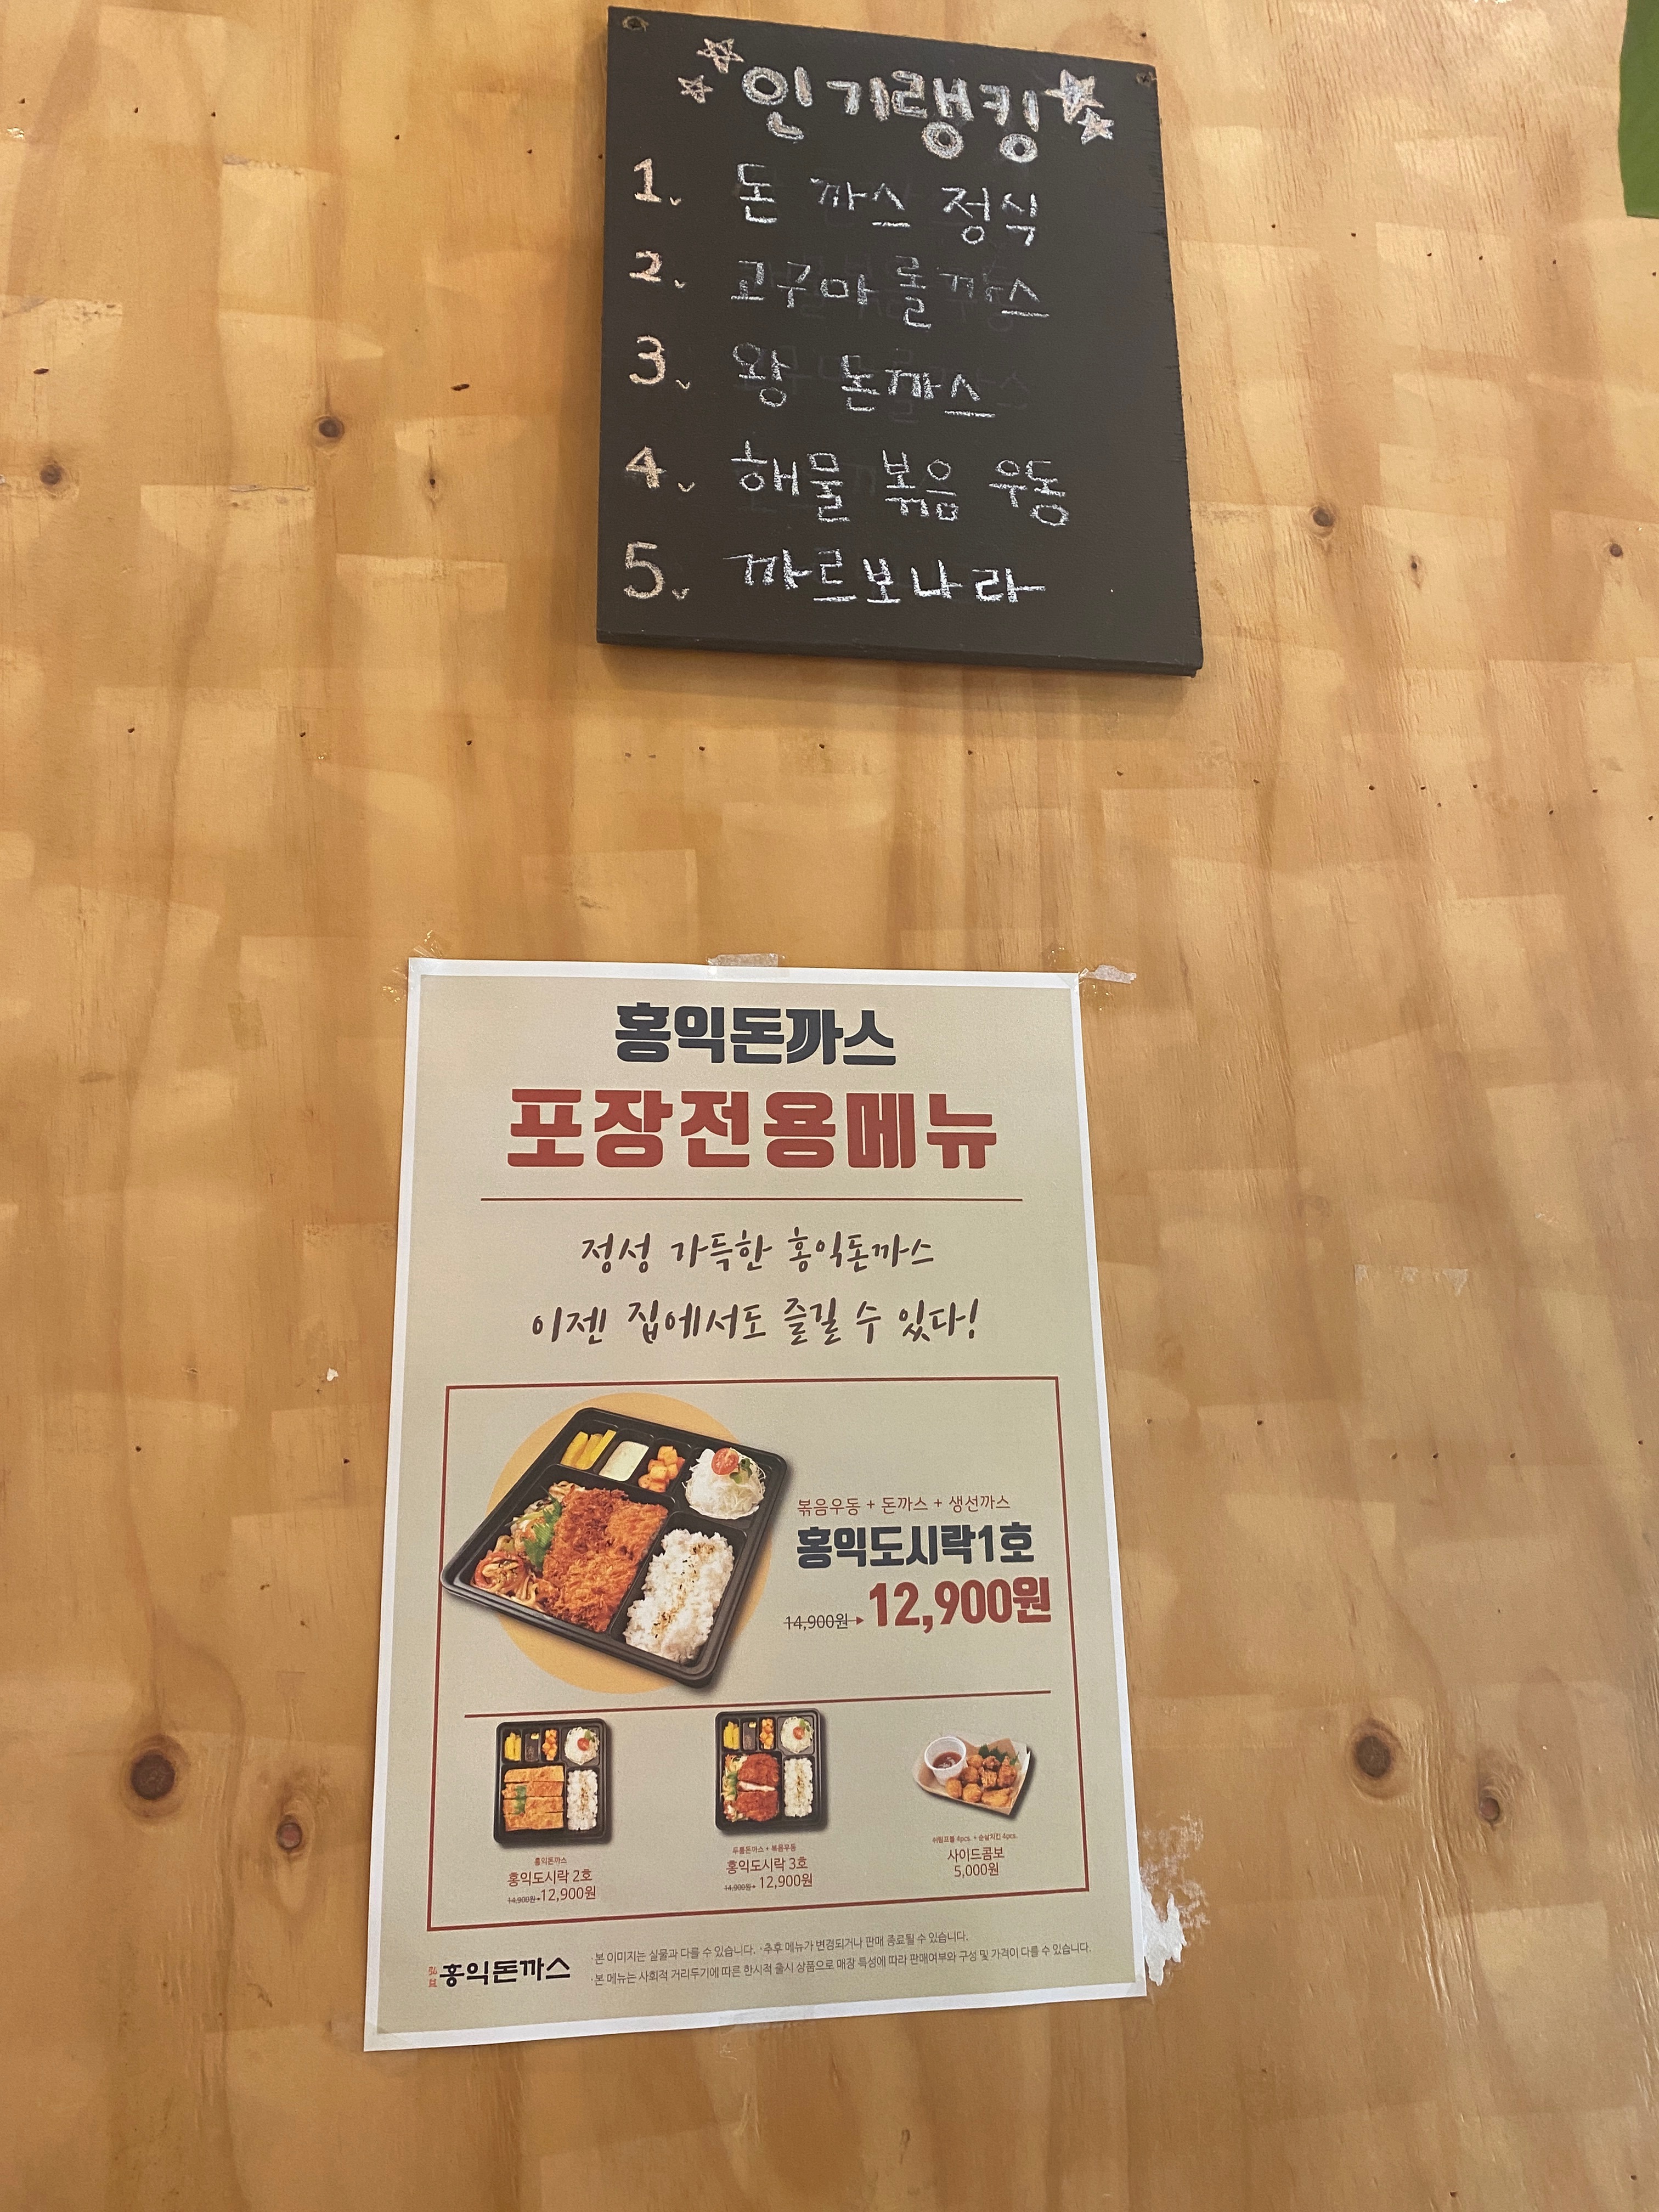 인기랭킹
1. 돈까스 정식
2. 고구마롤까스
3. 왕 돈까스
4. 해물 볶음 우동
5. 까르보나라
홍익돈까스
포장전용메뉴
정성 가득한 홍익돈까스
이젠 집에서도 즐길 수 있다!
볶음우동 + 돈까스 + 생선까스
홍익도시락1호
14,900원 12,900원
홍익돈까스
홍익도시락 2호
14,900원 12,900원
두툼돈까스 + 볶음우동
홍익도시락 3호
14,900원 12,900원
4pcs. + 순살치킨 4pcs.
사이드콤보
5,000원
홍익돈까스
·본 이미지는 실물과 다를 수 있습니다. ·추후 메뉴가 변경되거나 판매 종료될 수 있습니다.
·본 메뉴는 사회적 거리두기에 따른 한시적 출시 상품으로 매장 특성에 따라 판매여부와 구성 및 가격이 다를 수 있습니다.